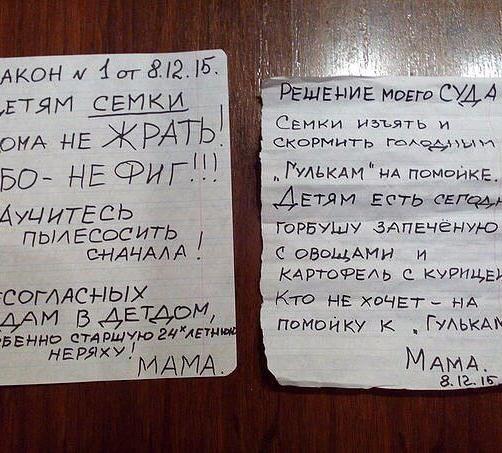 АКОН N 1 от 8.12.15.
ЕТЯМ СЕМКИ
ОМА НЕ ЖРАТЬ!
БО- НЕ ФИГ!!!
АУЧИТЕСЬ
ПЫЛЕСОСИТЬ
СНАЧАЛА!
СОГЛАСНЫХ
ДАМ В ДЕТДОМ,
ОБЕННО СТАРШУЮ 24х ЛЕТНЮЮ
НЕРЯХУ!
МАМА.
РЕШЕНИЕ МОЕГО СУДА
СЕМКИ ИЗЪЯТЬ И
СКОРМИТЬ ГОЛОДНЫМ
„ГУЛЬКАМ" НА ПОМОЙКЕ.
ДЕТЯМ ЕСТЬ СЕГОДН
ГОРБУШУ ЗАПЕЧЁНУЮ
С ОВОЩАМИ И
КАРТОФЕЛЬ С КУРИЦЕЙ
КТО НЕ ХОЧЕТ – НА
ПОМОЙКУ К „ГУЛЬКАМ
МАМА.
8.12.15